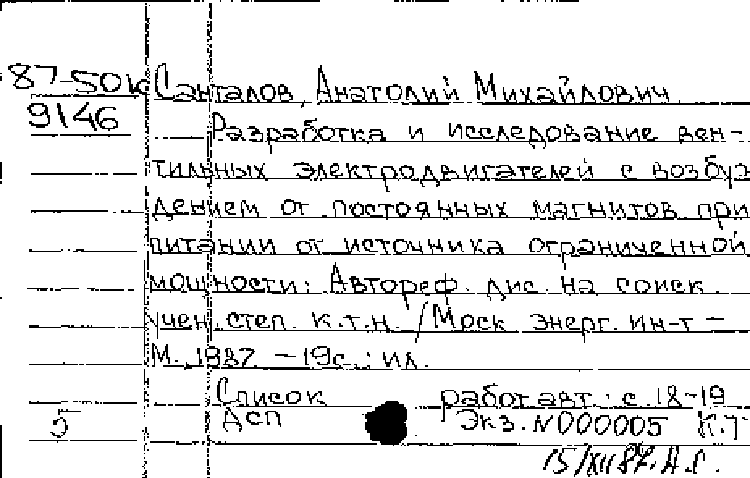 87-50к
9146
Санталов, Анатолий Михайлович
Разработка и исследование вен-
тильных электродвигателей с возбуж
дением от постоянных магнитов при
питании от источника ограниченной
мощности: Автореф. дис. на соиск.
учен. степ. к.т.н. / Моск энерг. ин-т –
М. 1987. – 19с.: ил.
Список работ авт.: с. 18-19
5 ДСП Экз. N000005 К.т
15/XII 87. А.